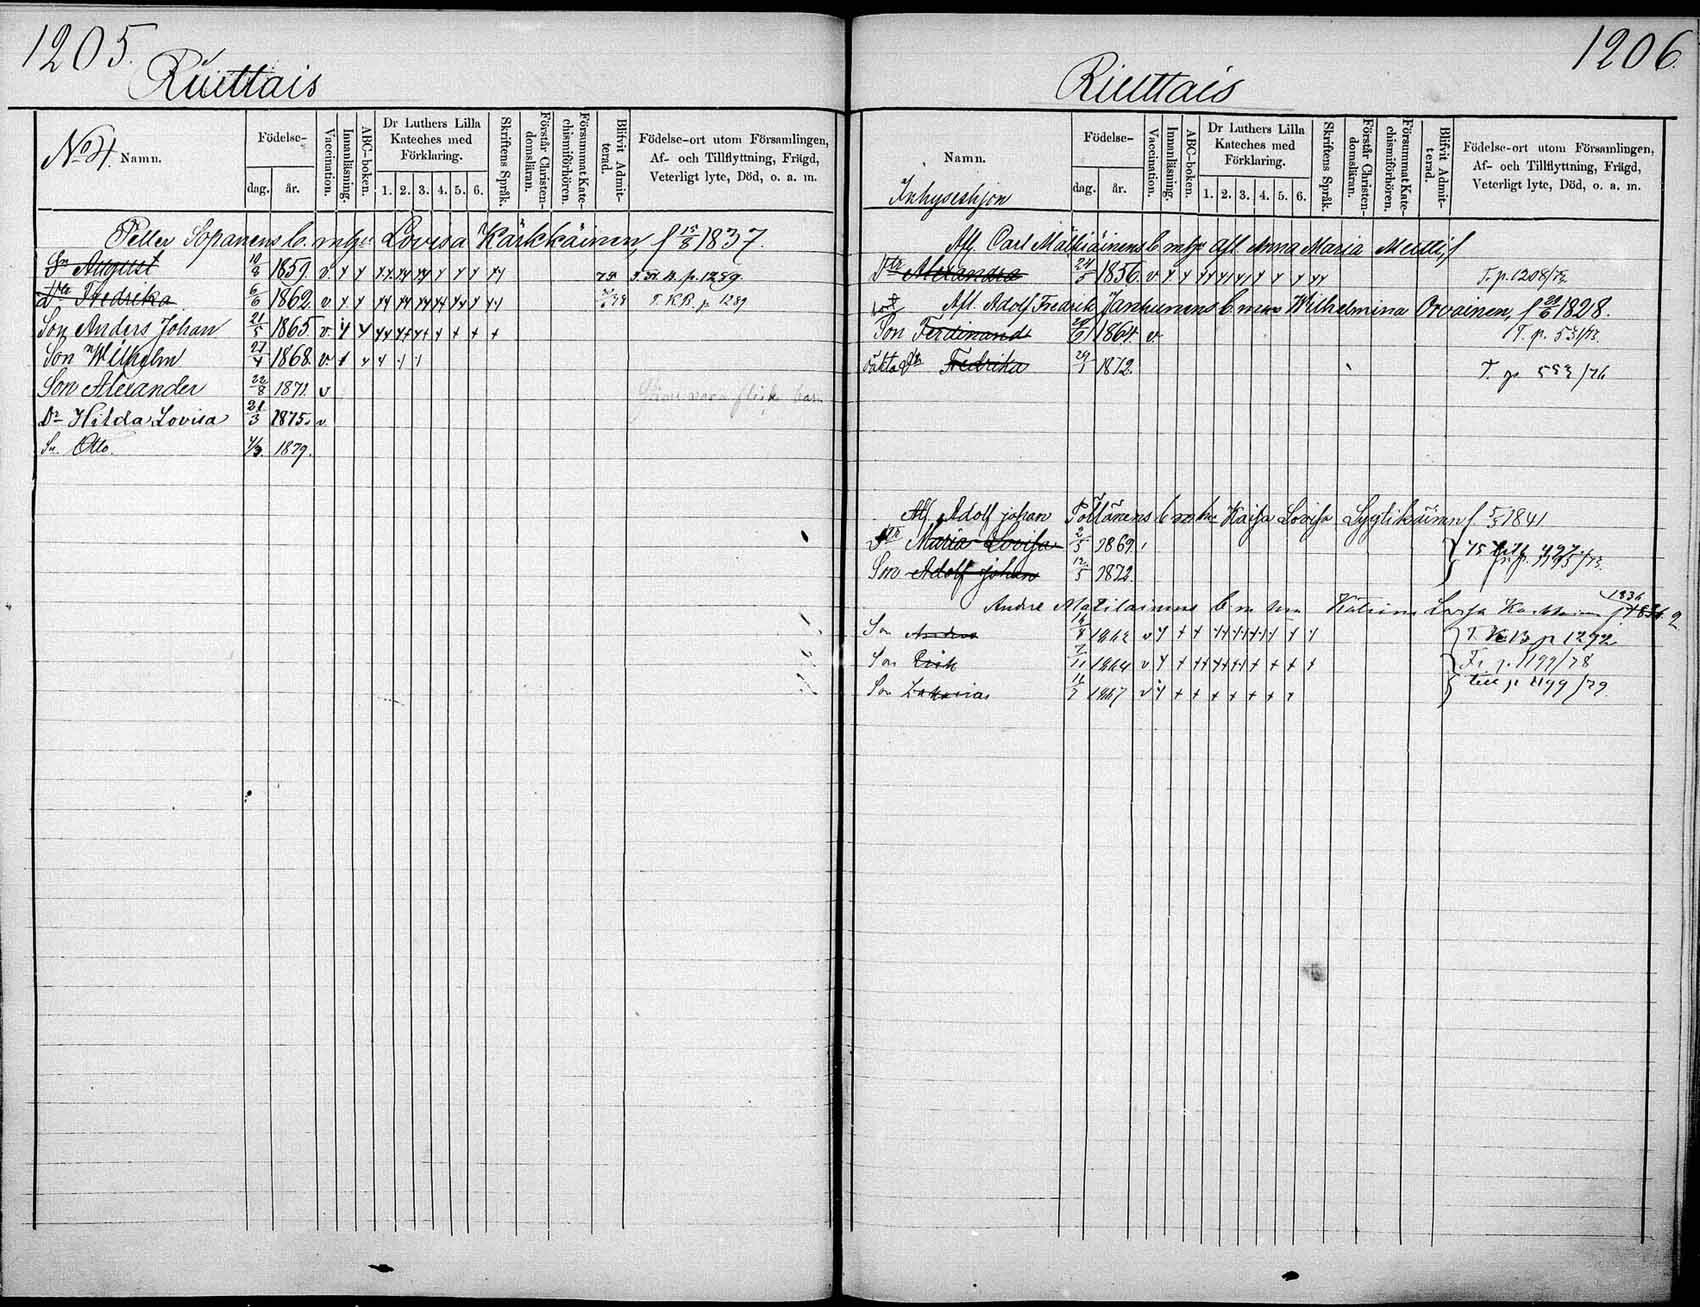 1205.
Riuttais
No 4. Namn.
Födelse-
dag. år.
Vaccination.
Innanläsning.
ABC-boken.
Dr Luthers Lilla Kateches med Förklaring.
1. 2. 3. 4. 5. 6.
Skriftens Språk.
Förstår Christendomsläran.
Försummat Katechismiförhören.
Blifvit Admitterad.
Födelse-ort utom Församlingen,
Af- och Tillflyttning, Frägd,
Veterligt lyte, Död, o. a. m.
Petter Sopanens b. m hu Lovisa Kärkkäinen, f 15/8 1837.
Sn August 10/8 1859. v
Dtr Fredrika 6/6 1862. v T. K.B. p. 1289
Son Anders Johan 21/5 1865 v.
Son Wilhelm 27/4 1868. v.
Son Alexander 22/8 1871. v
Dr Hilda Lovisa 21/3 1875. v
Sn Otto. 4/3. 1879.
1206.
Riuttais
Namn.
Inhyseshjon
Födelse-
dag. år.
Vaccination.
Innanläsning.
ABC-boken.
Dr Luthers Lilla Kateches med Förklaring.
1. 2. 3. 4. 5. 6.
Skriftens Språk.
Förstår Christendomsläran.
Försummat Katechismiförhören.
Blifvit Admitterad.
Födelse-ort utom Församlingen,
Af- och Tillflyttning, Frägd,
Veterligt lyte, Död, o. a. m.
Afl. Carl Mälkiäinens b m hu afl Anna Maria
Dtr Alexandra 24/5 1856. v T. p. 1208/73
Afl. Adolf Fredrik Janhunens b. m Wilhelmina Orvainen, f 1828.
Son Ferdinand 1864. v T. p. 531/73.
oäkta Dtr Fredrika 29/1 1872. T. p 533/76
Afl Adolf Johan Pöllänens b m hu Kaisa Lovisa Lyytikäinen f 1841
Dtr Maria Lovisa 2/5 1869.
Son Adolf Johan 12/5 1872.
Andre Matilainens b m hu Katrina Lovisa 1836
Son Andrus 1862 v T KB p 1292
Son Erik 7/11 1864 v Fr. p. 1199/78
Son Zakarias 1867 v till p 1199/79